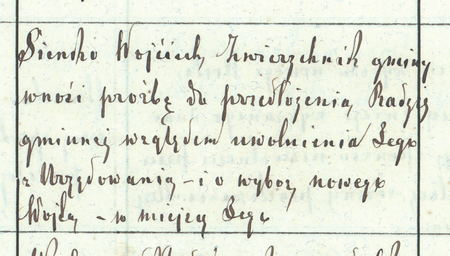 Sieńko Wojciech Zwierzchnik gminy
wnosi prośbę do przedłożenia Radzie
gminnej względem uwolnienia Jego
z Urzędowania – i o wybor nowego
Wojta – w miejscu Jego